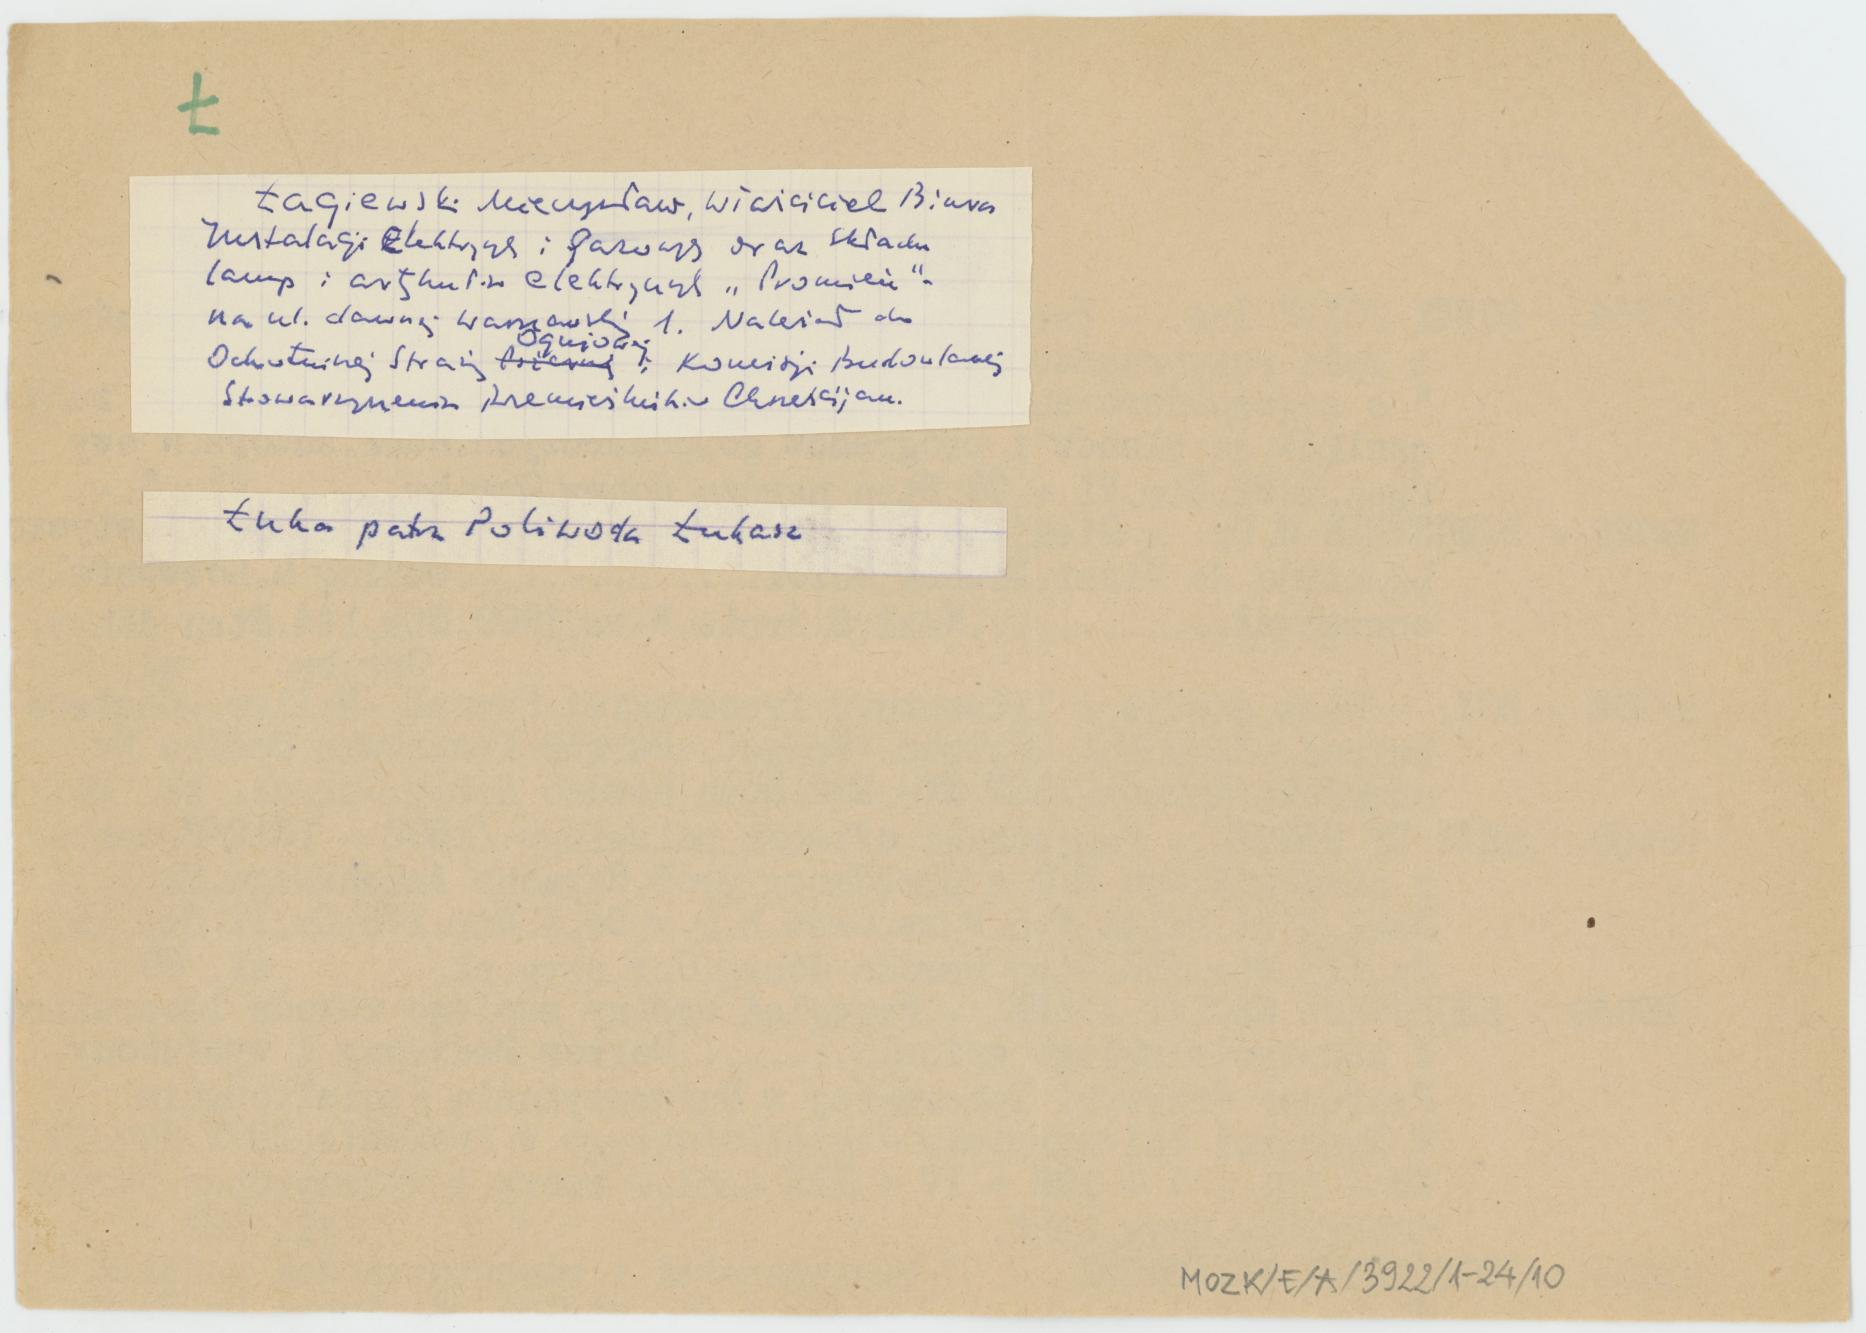 Ł
Łagiewski Mieczysław, właściciel Biura
Instalacji Elektrycznych i Gazowych oraz składu
lamp i artykułów elektrycznych „Promień"-
na ul. dawnej Warszawskiej 1. Należał do
Ochotniczej Straży Ogniowej i Komisji Budowlanej
Stowarzyszenia Rzemieślników Chrześcijan.
Łuka patrz Poliwoda Łukasz
MOZK/E/A/3922/1-24/10